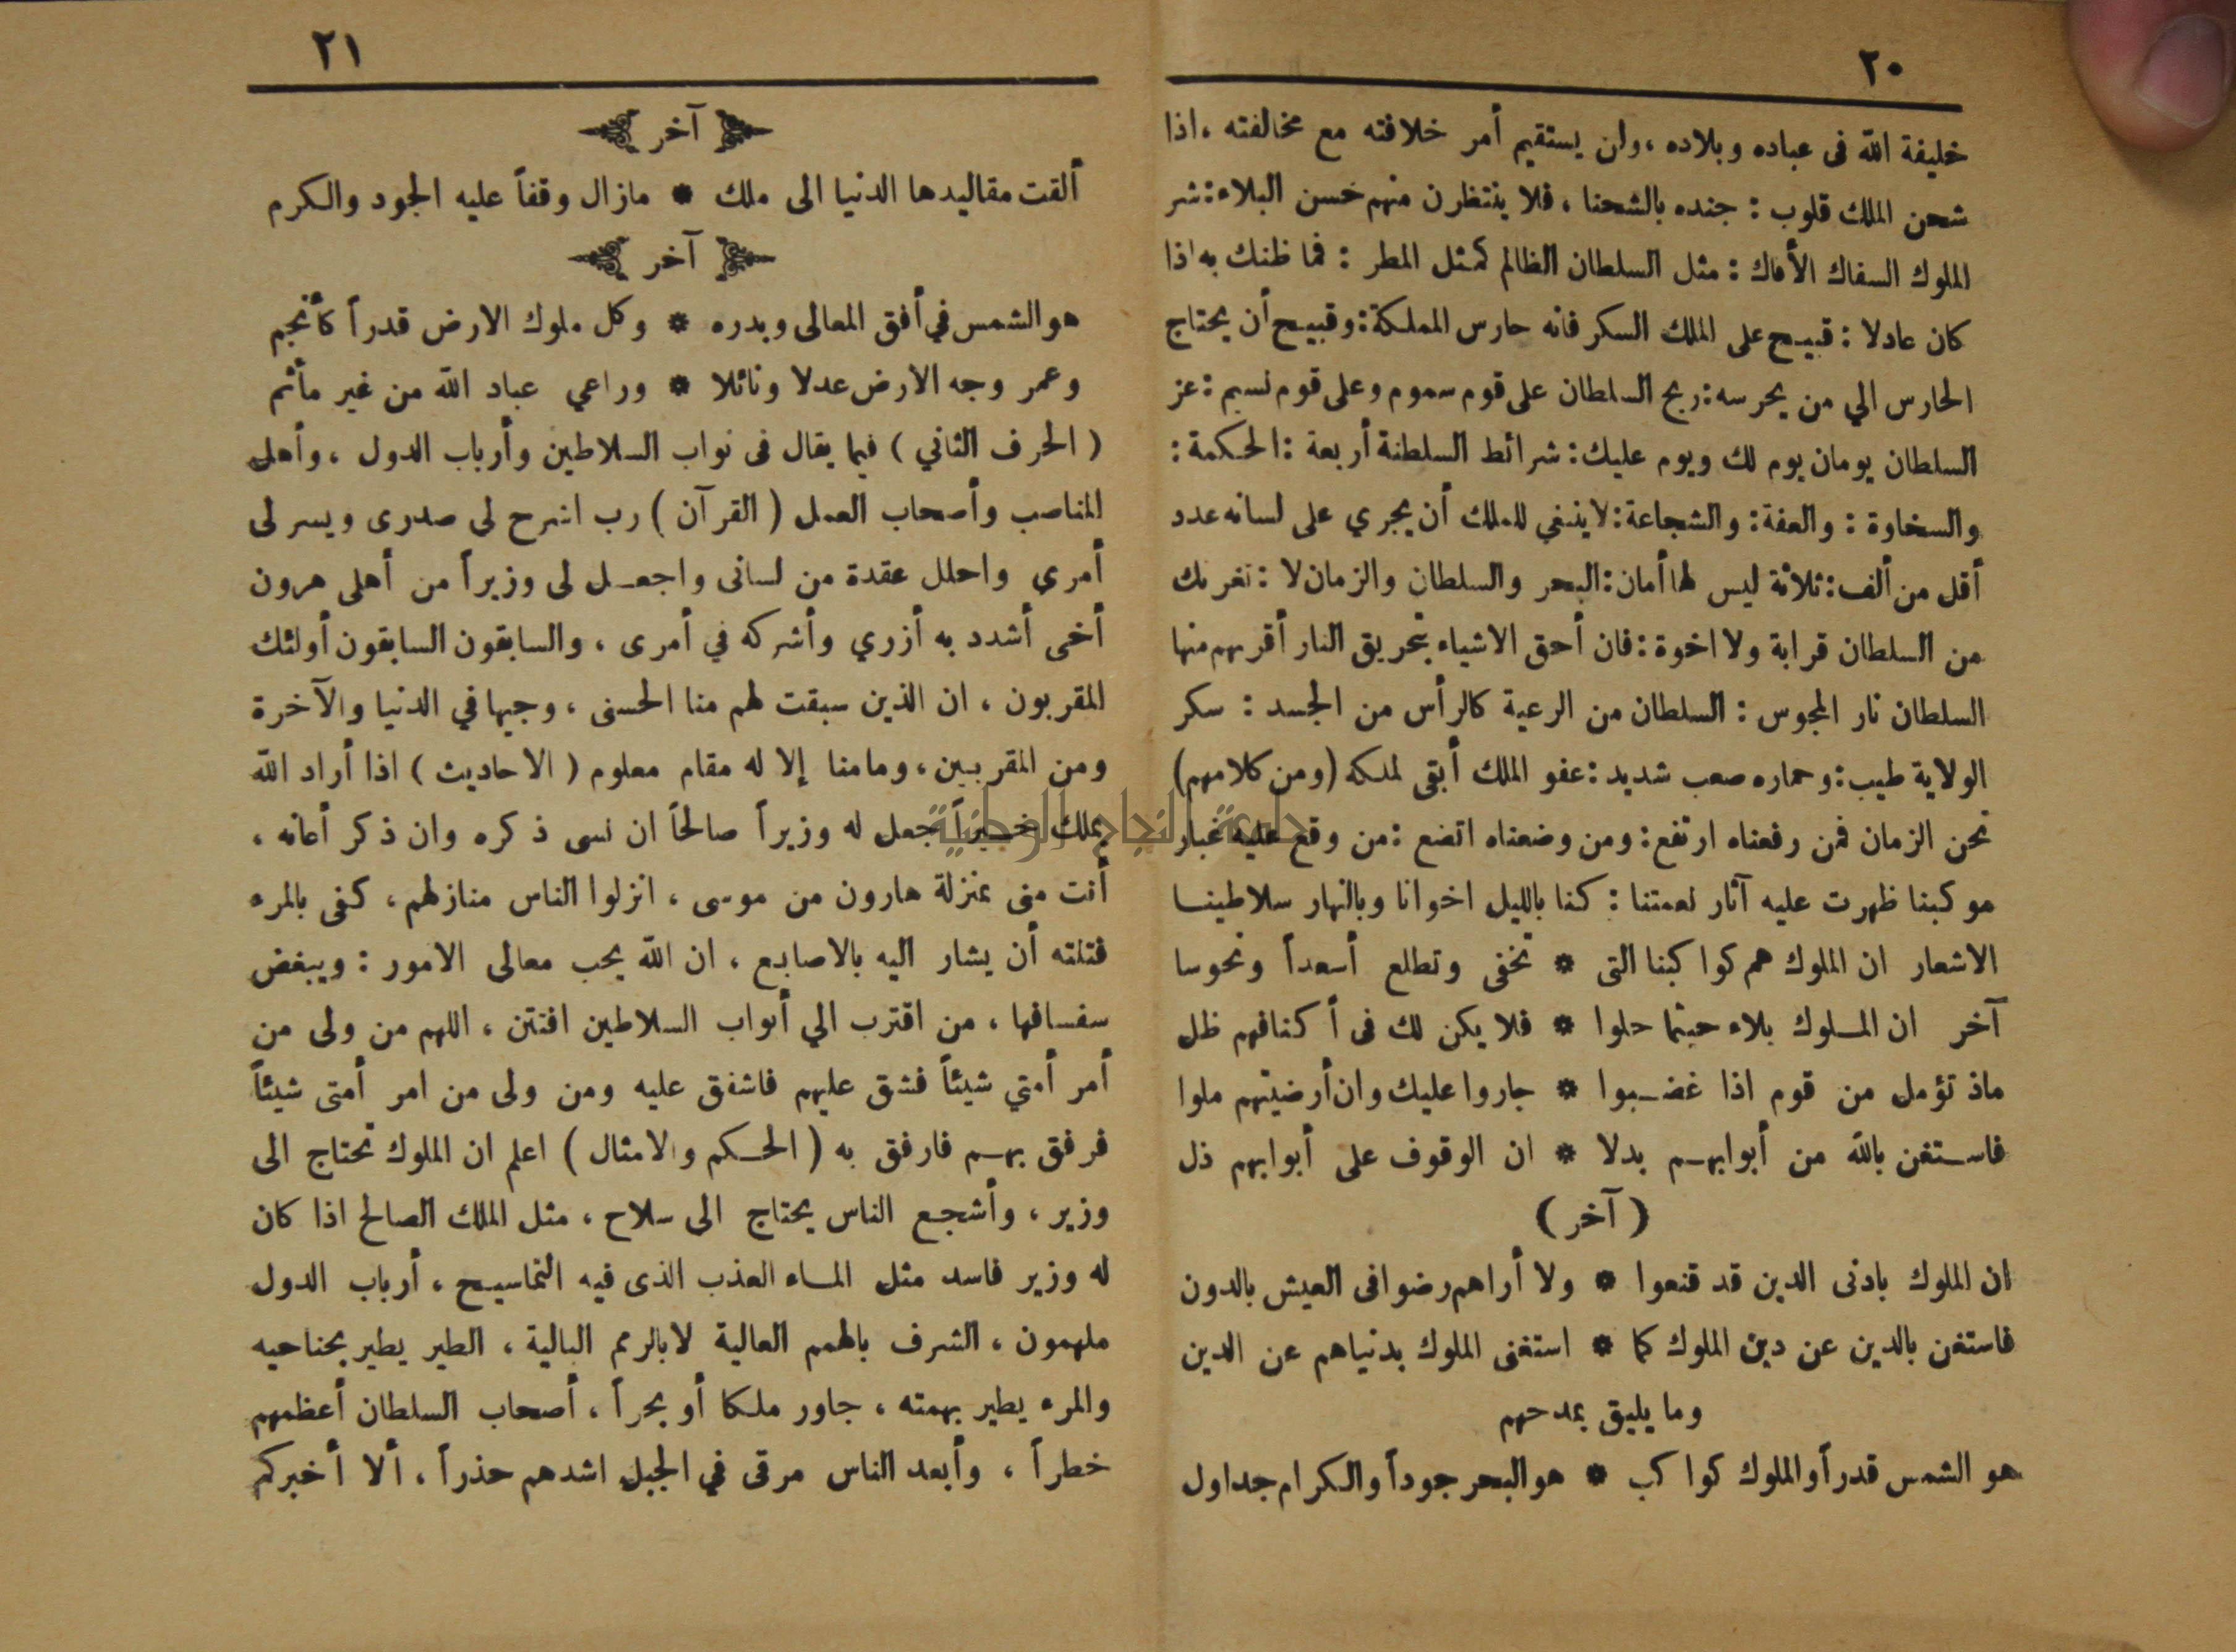 ٢٠
خليفة الله فى عباده وبلاده ، وان يستقيم أمر خلافته مع مخالفته ، اذا
شحن الملك قلوب : جنده بالشحنا ، فلا ينتظرن منهم خسن البلاء : شر
الملوك السفاك الأفاك : مثل السلطان الظالم كمثل المطر : فما ظنك به اذا
كان عادلا : قبيح على الملك السكر فانه حارس المملكة : وقبيح أن يحتاج
الحارس الي من يحرسه : ريح السلطان على قوم سموم وعلى قوم نسيم : عز
السلطان يومان يوم لك ويوم عليك : شرائط السلطنة أربعة : الحكمة :
والسخاوة : والعفة : والشجاعة : لا ينبغي للملك أن يجري على لسانه عدد
أقل من ألف : ثلاثة ليس لها أمان : البحر والسلطان والزمان لا : تغرنك
من السلطان قرابة ولا اخوة : فان أحق الاشياء بتحريق النار أقربهم منها
السلطان نار المجوس : السلطان من الرعية كالرأس من الجسد : سكر
الولاية طيب : وخماره صعب شديد : عفو الملك أبقى لملكه (ومن كلامهم)
نحن الزمان فمن رفعناه ارتفع : ومن وضعناه اتضع : من وقع عليه غبار
موكبنا ظهرت عليه آثار نعمتنا : كنا بالليل اخوانا وبالنهار سلاطينا
الاشعار ان الملوك هم كواكبنا التى * تخفى وتطلع أسعداً ونحوسا
آخر ان الملوك بلاء حيثما حلوا * فلا يكن لك فى أكنافهم ظل
ماذ تؤمل من قوم اذا غضبوا * جاروا عليك وان أرضيتهم ملوا
فاستغن بالله من أبوابهم بدلا * ان الوقوف على أبوابهم ذل
( آخر )
ان الملوك بادنى الدين قد قنعوا * ولا أراهم رضوا فى العيش بالدون
فاستغن بالدين عن دين الملوك كما * استغنى الملوك بدنياهم عن الدين
وما يليق بمدحهم
هو الشمس قدراً والملوك كواكب * هو البحر جوداً والكرام جداول
٢١
آخر
ألقت مقاليدها الدنيا الى ملك * مازال وقفاً عليه الجود والكرم
آخر
هو الشمس في أفق المعالى وبدره * وكل ملوك الارض قدراً كأنجم
وعمر وجه الارض عدلا ونائلا * وراعي عباد الله من غير مأثم
( الحرف الثاني ) فيما يقال فى نواب السلاطين وأرباب الدول ، وأهل
المناصب وأصحاب العمل ( القرآن ) رب اشرح لى صدرى ويسر لى
أمري واحلل عقدة من لسانى واجعل لى وزيراً من أهلى هرون
أخى أشدد به أزري وأشركه في أمرى ، والسابقون السابقون أولئك
المقربون ، ان الذين سبقت لهم منا الحسنى ، وجيها في الدنيا والآخرة
ومن المقربين ، ومامنا إلا له مقام معلوم ( الاحاديث ) اذا أراد الله
بملك خيراً جعل له وزيراً صالحاً ان نسى ذكره وان ذكر أعانه ،
أنت منى بمنزلة هارون من موسى ، انزلوا الناس منازلهم ، كفى بالمرء
فتلته أن يشار اليه بالاصابع ، ان الله يحب معالى الامور : ويبغض
سفسافها ، من اقترب الي أبواب السلاطين افتتن ، اللهم من ولى من
أمر أمتي شيئاً فشق عليهم فاشفق عليه ومن ولى من امر أمتى شيئاً
فرفق بهم فارفق به ( الحكم والامثال ) اعلم ان الملوك تحتاج الى
وزير ، وأشجع الناس يحتاج الى سلاح ، مثل الملك الصالح اذا كان
له وزير فاسد مثل الماء العذب الذى فيه التماسيح ، أرباب الدول
ملهمون ، الشرف بالهمم العالية لا بالرمم البالية ، الطير يطير بجناحيه
والمرء يطير بهمته ، جاور ملكا أو بحراً ، أصحاب السلطان أعظمهم
خطراً ، وأبعد الناس مرقى في الجبل اشدهم حذراً ، ألا أخبركم
جامعة النجاح الوطنية